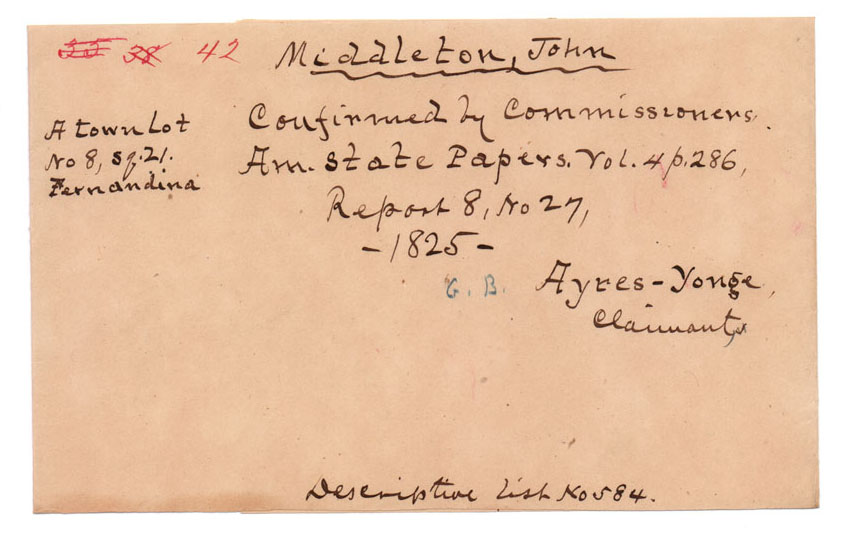 42
Middleton, John
A town Lot
No 8, Sq. 21.
Fernandina
Confirmed by Commissioners.
Am. State Papers. Vol. 4 p. 286,
Report 8, No 27,
- 1825 -
G. B. Ayres - Yonge,
Claimant
Descriptive List No 584.